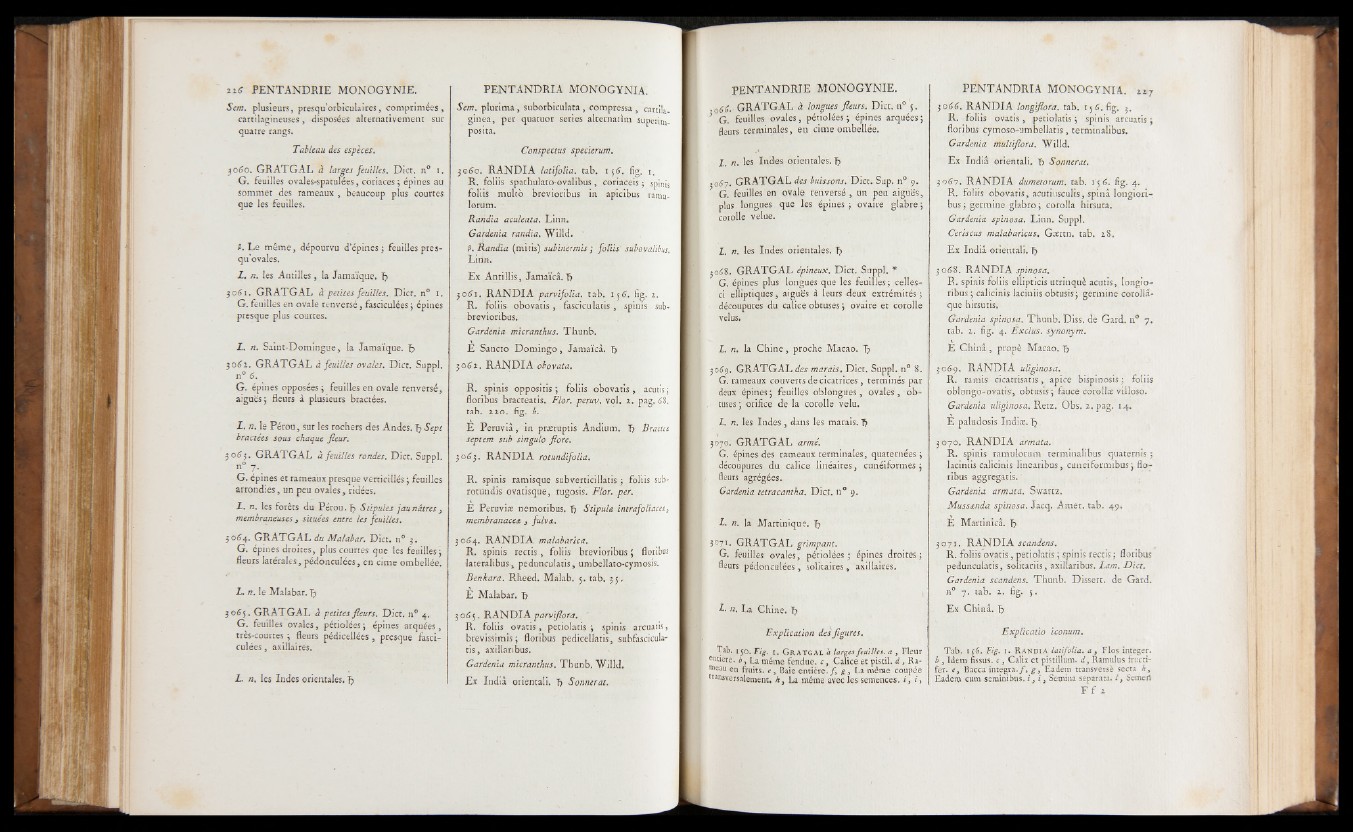 226 PENTANDRIE MONOGYNIE.
Sem. plusieurs, presqu'orbiculaires, comprimées,
cartilagineuses, disposées alternativement sur
quatre rangs.
Tableau des espèces.
3060. GRATGAL à larges feuilles. Dict. n° 1.
G. feuilles ovales-spatulées, coriaces ; épines au
sommet des rameaux, beaucoup plus courtes
que les feuilles.
β. Le même, dépourvu d'épines ; feuilles pres-
qu'ovales.
L. n. les Antilles, la Jamaïque. ♄
3061. GRATGAL à petites feuilles. Dict. n° 1.
G. feuilles en ovale renversé, fasciculées ; épines
presque plus courtes.
L. n. Saint-Domingue, la Jamaïque. ♄
3062. GRATGAL à feuilles ovales. Dict. Suppl.
n° 6.
G. épines opposées ; feuilles en ovale renversé,
aiguës ; fleurs à plusieurs bractées.
L. n. le Pérou, sur les rochers des Andes. ♄ Sept
bractées sous chaque fleur.
3063. GRATGAL à feuilles rondes. Dict. Suppl.
n° 7.
G. épines et rameaux presque verticillés ; feuilles
arrondies, un peu ovales, ridées.
L. n. les forêts du Pérou. ♄ Stipules jaunâtres,
membraneuses, situées entre les feuilles.
3064. GRATGAL du Malabar. Dict. n° 3.
G. épines droites, plus courtes que les feuilles ;
fleurs latérales, pédonculées, en cime ombellée.
L. n. le Malabar. ♄
3065. GRATGAL à petites fleurs. Dict. n° 4.
G. feuilles ovales, pétiolées ; épines arquées,
très-courtes ; fleurs pédicellées, presque fasci-
culées, axillaires.
L. n. les Indes orientales. ♄
PENTANDRIA MONOGYNIA.
Sem. plurima, suborbiculata, compressa, cartila-
ginea, per quatuor series alternatim superim-
posita.
Conspectus specierum.
3060. RANDIA latifolia. tab. 156. fig. 1.
R. foliis spathulato-ovalibus, coriaceis ; spinis
foliis multò brevioribus in apicibus ramu-
lorum.
Randia aculeata. Linn.
Gardenia randia. Willd.
β. Randia (mitis) subinermis ; foliis subovalibus.
Linn.
Ex Antillis, Jamaïcâ. ♄
3061. RANDIA parvifolia. tab. 156. fig. 2.
R. foliis obovatis, fasciculatis, spinis sub-
brevioribus.
Gardenia micranthus. Thunb.
È Sancto Domingo, Jamaïcâ. ♄
3062. RANDIA obovata.
R. spinis oppositis ; foliis obovatis, acutis ;
floribus bracteatis. Flor. peruv. vol. 2. pag. 68.
tab. 220. fig. b.
È Peruviâ, in præruptis Andium. ♄ Bractes
septem sub singulo flore.
3063. RANDIA rotundifolia.
R. spinis ramisque subverticillatis ; foliis sub-
rotundis ovatisque, rugosis. Flor. per.
È Peruviæ nemoribus. ♄ Stipulæ intrafoliaceæ,
membranaceæ, fulvæ.
3064. RANDIA malabarica.
R. spinis rectis, foliis brevioribus ; floribus
lateralibus, pedunculatis, umbellato-cymosis.
Benkara. Rheed. Malab. 5. tab. 35.
È Malabar. ♄
3065. RANDIA parviflora.
R. foliis ovatis, petiolatis ; spinis arcuatis,
brevissimis ; floribus pedicellatis, subfascicula-
tis, axillaribus.
Gardenia micranthus. Thunb. Willd.
Ex Indiâ orientali. ♄ Sonnerat.
PENTANDRIE MONOGYNIE.
3066. GRATGAL à longues fleurs. Dict. n° 5.
G. feuilles ovales, pétiolées ; épines arquées ;
fleurs terminales, en cime ombellée.
L. n. les Indes orientales. ♄
3067. GRATGAL des buissons. Dict. Sup. n° 9.
G. feuilles en ovale renversé, un peu aiguës,
plus longues que les épines ; ovaire glabre ;
corolle velue.
L. n. les Indes orientales. ♄
3068. GRATGAL épineux. Dict. Suppl. *
G. épines plus longues que les feuilles ; celles-
ci elliptiques, aiguës à leurs deux extrémités ;
découpures du calice obtuses ; ovaire et corolle
velus.
L. n. la Chine, proche Macao. ♄
3069. GRATGAL des marais. Dict. Suppl. n° 8.
G. rameaux couverts de cicatrices, terminés par
deux épines ; feuilles oblongues, ovales, ob-
tuses ; orifice de la corolle velu.
L. n. les Indes, dans les marais. ♄
3070. GRATGAL armé.
G. épines des rameaux terminales, quaternées ;
découpures du calice linéaires, cunéiformes ;
fleurs agrégées.
Gardenia tetracantha. Dict. n° 9.
L. n. la Martinique. ♄
3071. GRATGAL grimpant.
G. feuilles ovales, pétiolées ; épines droites ;
fleurs pédonculées, solitaires, axillaires.
L. n. La Chine. ♄
Explication des figures.
Tab. 150. Fig. 1. GRATGAL à larges feuilles. a, Fleur
entière. b, La même fendue. c, Calice et pistil. d, Ra-
meau en fruits. e, Baie entière. f, g, La même coupée
transversalement. h, La même avec les semences. i, i,
PENTANDRIA MONOGYNIA. 227
3066. RANDIA longiflora. tab. 156. fig. 3.
R. foliis ovatis, petiolatis ; spinis arcuatis ;
floribus cymoso-umbellatis, terminalibus.
Gardenia multiflora. Willd.
Ex Indiâ orientali. ♄ Sonnerat.
3067. RANDIA dumetorum. tab. 156. fig. 4.
R. foliis obovatis, acutiusculis, spinâ longiori-
bus ; germine glabro ; corolla hirsuta.
Gardenia spinosa. Linn. Suppl.
Ceriscus malabaricus. Gærtn. tab. 28.
Ex Indiâ orientali. ♄
3068. RANDIA spinosa.
R. spinis foliis ellipticis utrinquè acutis, longio-
ribus ; calicinis laciniis obtusis ; germine corollâ-
que hirsutis.
Gardenia spinosa. Thunb. Diss. de Gard. n° 7.
tab. 2. fig. 4. Exclus. synonym.
È Chinâ, propè Macao. ♄
3069. RANDIA uliginosa.
R. ramis cicatrisatis, apice bispinosis ; foliis
oblongo-ovatis, obtusis ; fauce corollæ villoso.
Gardenia uliginosa. Retz. Obs. 2. pag. 14.
È paludosis Indiæ. ♄
3070. RANDIA armata.
R. spinis ramulorum terminalibus quaternis ;
laciniis calicinis linearibus, cuneiformibus ; flo-
ribus aggregatis.
Gardenia armata. Swartz.
Mussænda spinosa. Jacq. Amer. tab. 49.
È Martinicâ. ♄
3071. RANDIA scandens.
R. foliis ovatis, petiolatis ; spinis rectis ; floribus
pedunculatis, solitariis, axillaribus. Lam. Dict.
Gardenia scandens. Thunb. Dissert. de Gard.
n° 7. tab. 2. fig. 5.
Ex Chinâ. ♄
Explicatio iconum.
Tab. 156. Fig. 1. RANDIA latifolia. a, Flos integer.
b, Idem fissus. c, Calix et pistillum. d, Ramulus fructi-
fer. e, Bacca integra. f, g, Eadem transversè secta. h,
Eadem cum seminibus. i, i, Semina separata. l, Semen
F f 2